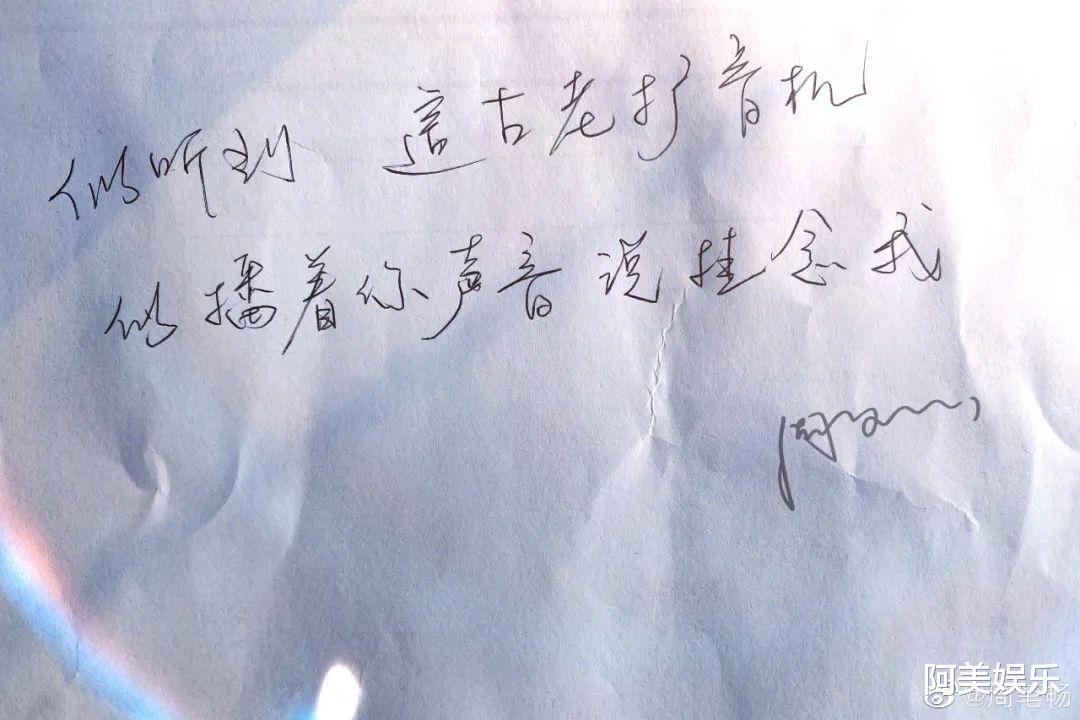 似听到 這古老扩音机
似播着你声音说挂念我
阿美娱乐
@周笔畅